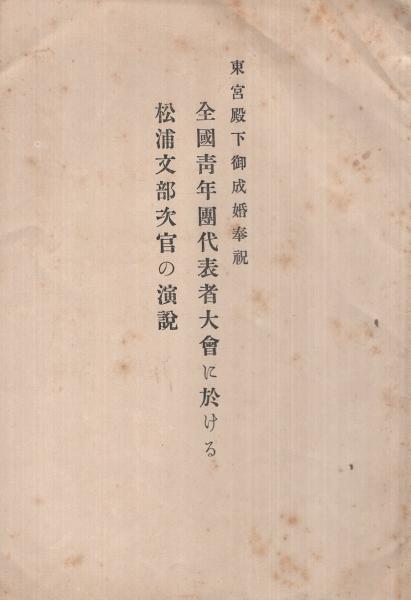 東宮殿下御成婚奉祝
全國靑年團代表者大會に於ける
松浦文部次官の演說